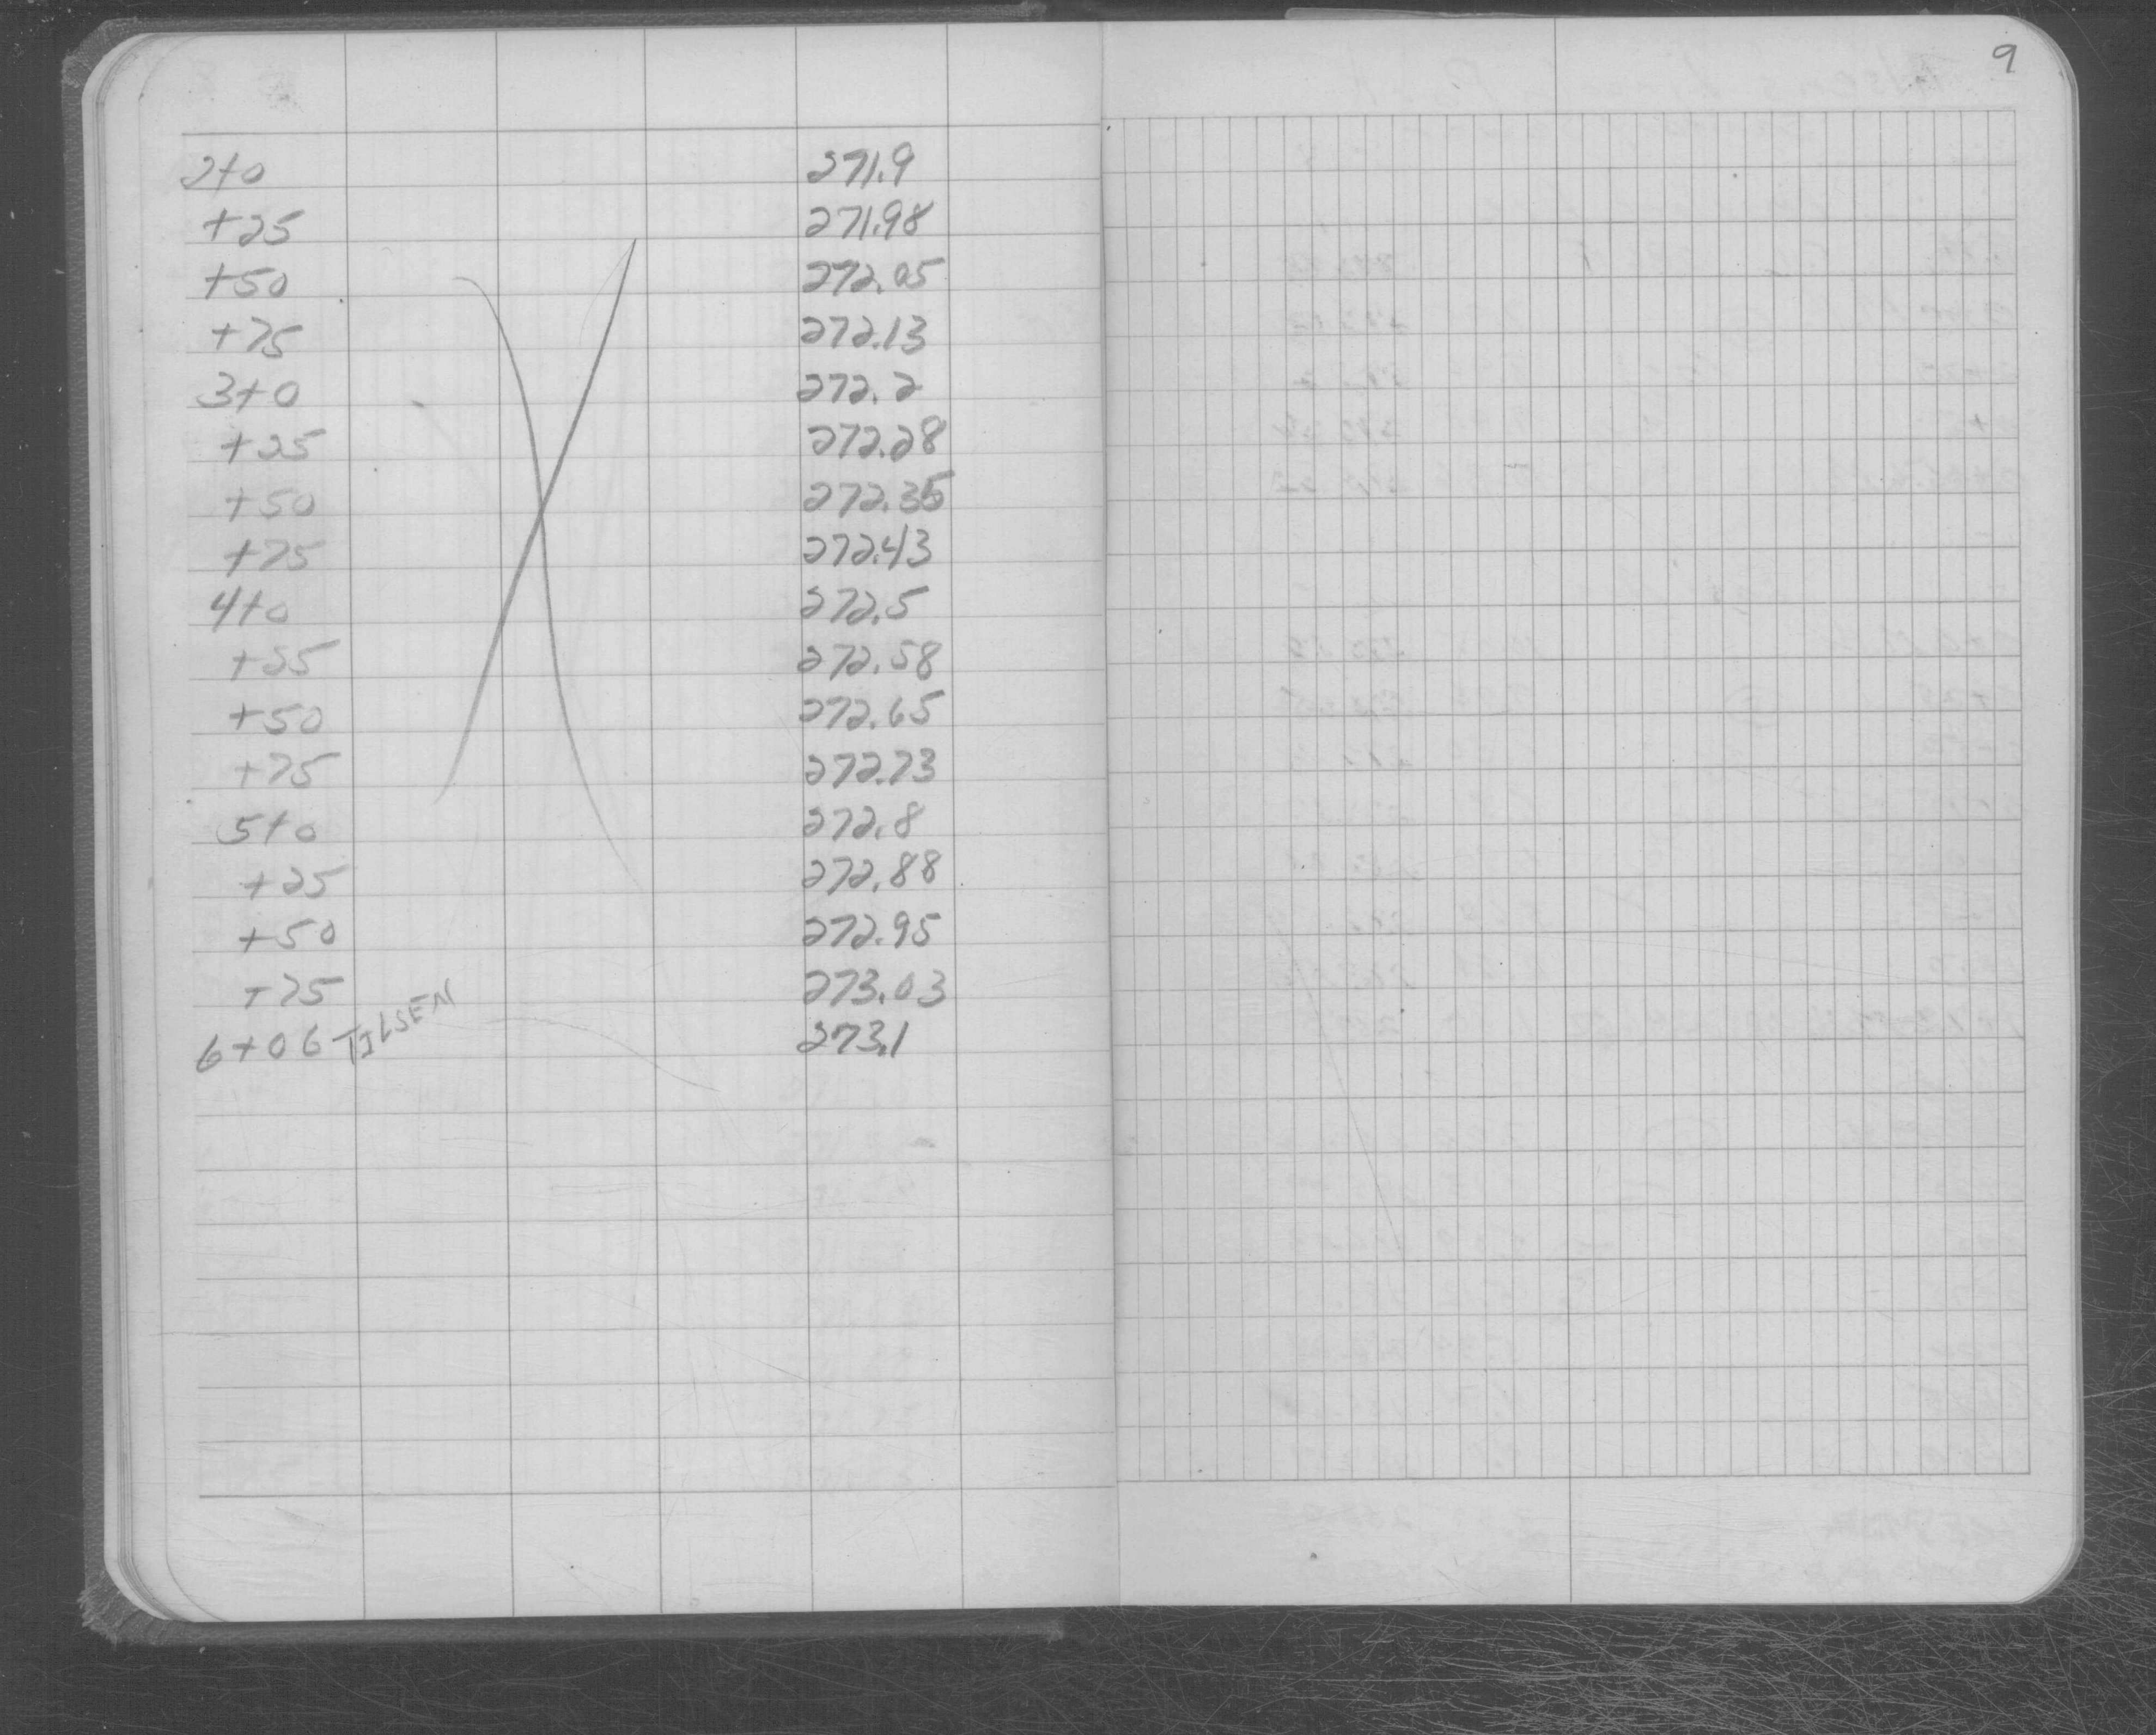 9
2+0 271.9
+25 271.98
+50 272.05
+75 272.13
3+0 272.2
+25 272.28
+50 272.35
+75 272.43
4+0 272.5
+25 272.58
+50 272.65
+75 272.73
5+0 272.8
+25 272.88
+50 272.95
+75 273.03
6+06 TILSEN 273.1